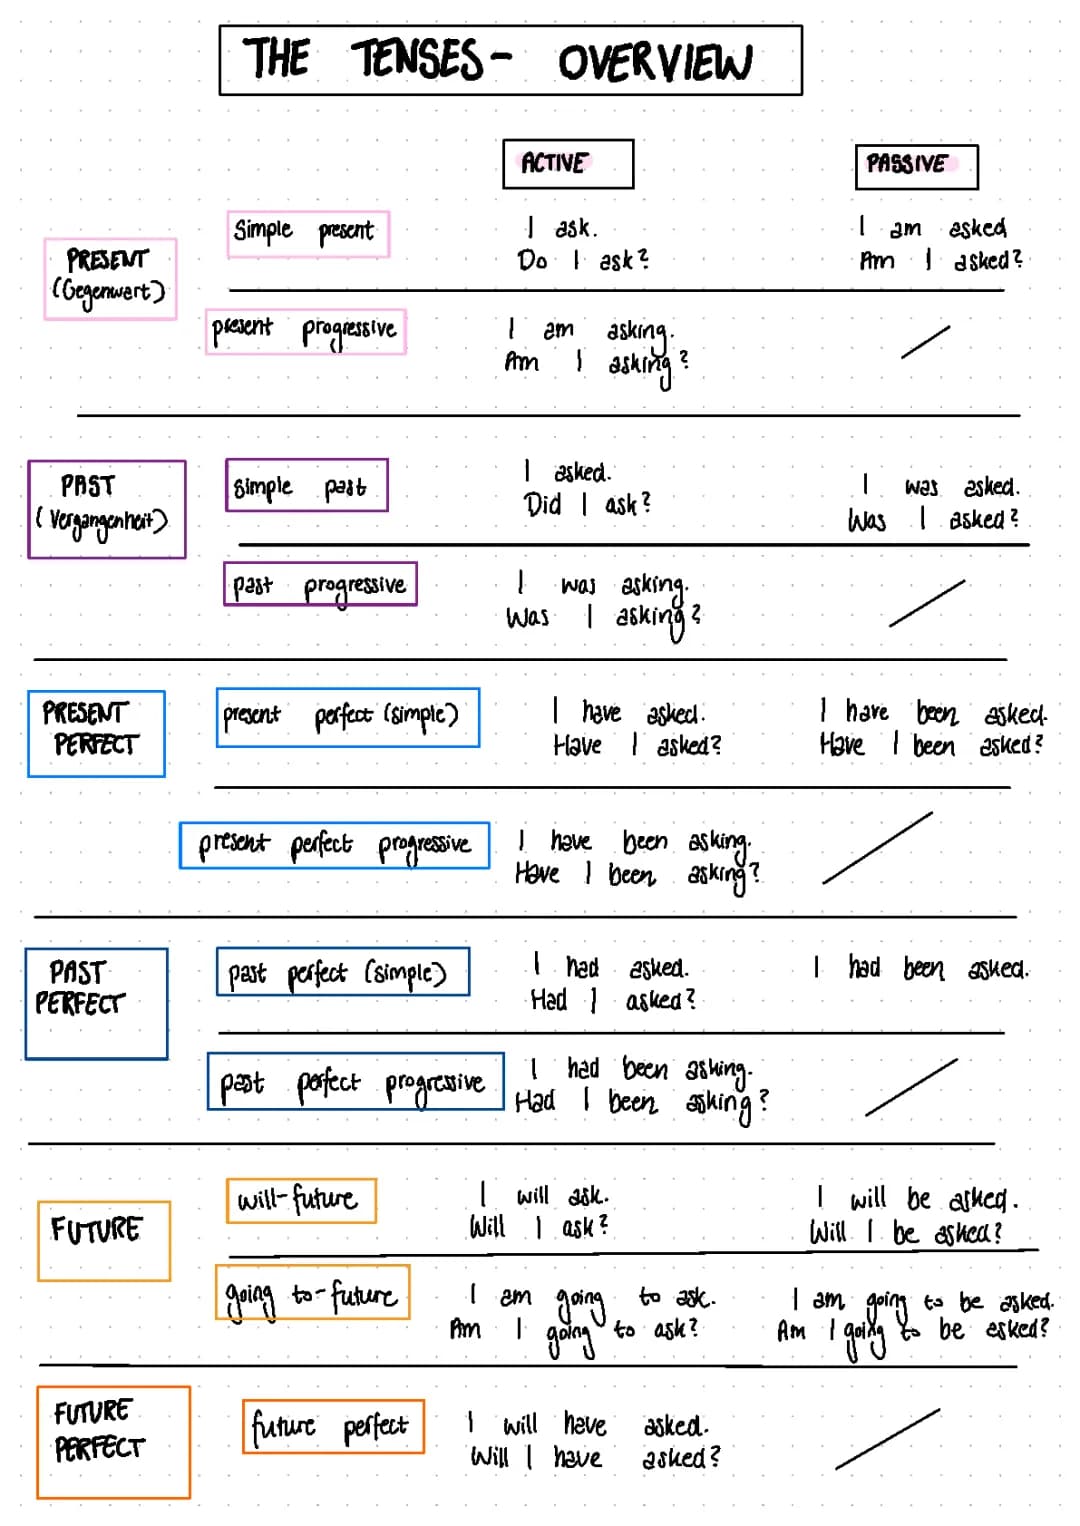 THE TENSES - OVERVIEW
ACTIVE
PASSIVE
PRESENT
(Gegenwart)
Simple present
I ask.
Do I ask?
I am asked
Am I asked?
present progressive
I am asking.
Am I asking?
PAST
(Vergangenheit)
simple past
I asked.
Did I ask?
I was asked.
Was I asked?
past progressive
I was asking.
Was I asking?
PRESENT
PERFECT
present perfect (simple)
I have asked.
Have I asked?
I have been asked.
Have I been asked?
present perfect progressive
I have been asking.
Have I been asking?
PAST
PERFECT
past perfect (simple)
I had asked.
Had I asked?
I had been asked.
past perfect progressive
I had been asking.
Had I been asking?
FUTURE
will-future
I will ask.
Will I ask?
I will be asked.
Will I be asked?
going to-future
I am going to ask.
Am I going to ask?
I am going to be asked.
Am I going to be asked?
FUTURE
PERFECT
future perfect
I will have asked.
Will I have asked?